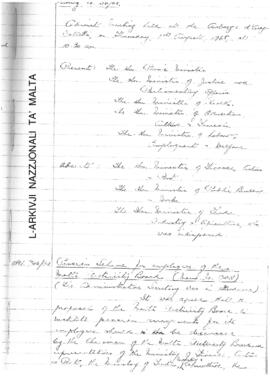 L-ARKIVJI NAZZJONALI TA' MALTA
Cabinet Meeting held at the Auberge d'Aragon
Valletta, on Thursday, 1st August, 1968, at
10.30 am
Present: The Hon Prime Minister
The Hon Minister of Justice and
Parliamentary Affairs
The Hon Minister of Health
The Hon Minister of Education
Culture & Tourism
The Hon Minister of Labour,
Employment & Welfare
Absent: The Hon Minister of Finance, Customs
& Port
The Hon Minister of Public Building
& Works
The Hon Minister of Trade
Industry & Agriculture, who
was indisposed
Pension Scheme for employees of the
Malta Electricity Board
(The Administrative Secretary was in attendance)
It was agreed that the
proposals of the Malta Electricity Board to
establish pension arrangements for its
employees should be discussed
by the Chairman of the Malta Electricity Board and
representatives of the Ministry of Finance, Customs
& Port, the Ministry of Trade, Industry & Agriculture, the